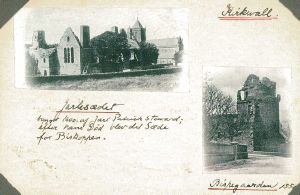 Kirkwall.
Jarlesædet
bygget 1600 af Jarl Patrick Steward;
efter hans Død blev det Sæde
for Biskoppen.
Bispegaarden